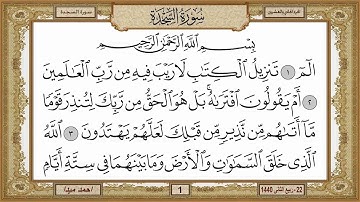 سورة السجدة
سُورَةُ السَّجْدَةِ
الجزء الحادي والعشرون
بِسْمِ اللَّهِ الرَّحْمَٰنِ الرَّحِيمِ
الٓمٓ ١ تَنزِيلُ الْكِتَٰبِ لَا رَيْبَ فِيهِ مِن رَّبِّ الْعَٰلَمِينَ
٢ أَمْ يَقُولُونَ افْتَرَىٰهُ ۚ بَلْ هُوَ الْحَقُّ مِن رَّبِّكَ لِتُنذِرَ قَوْمًا
مَّآ أَتَىٰهُم مِّن نَّذِيرٍ مِّن قَبْلِكَ لَعَلَّهُمْ يَهْتَدُونَ ٣ اللَّهُ
الَّذِي خَلَقَ السَّمَٰوَٰتِ وَالْأَرْضَ وَمَا بَيْنَهُمَا فِي سِتَّةِ أَيَّامٍ
22- ربيع الثاني 1440
1